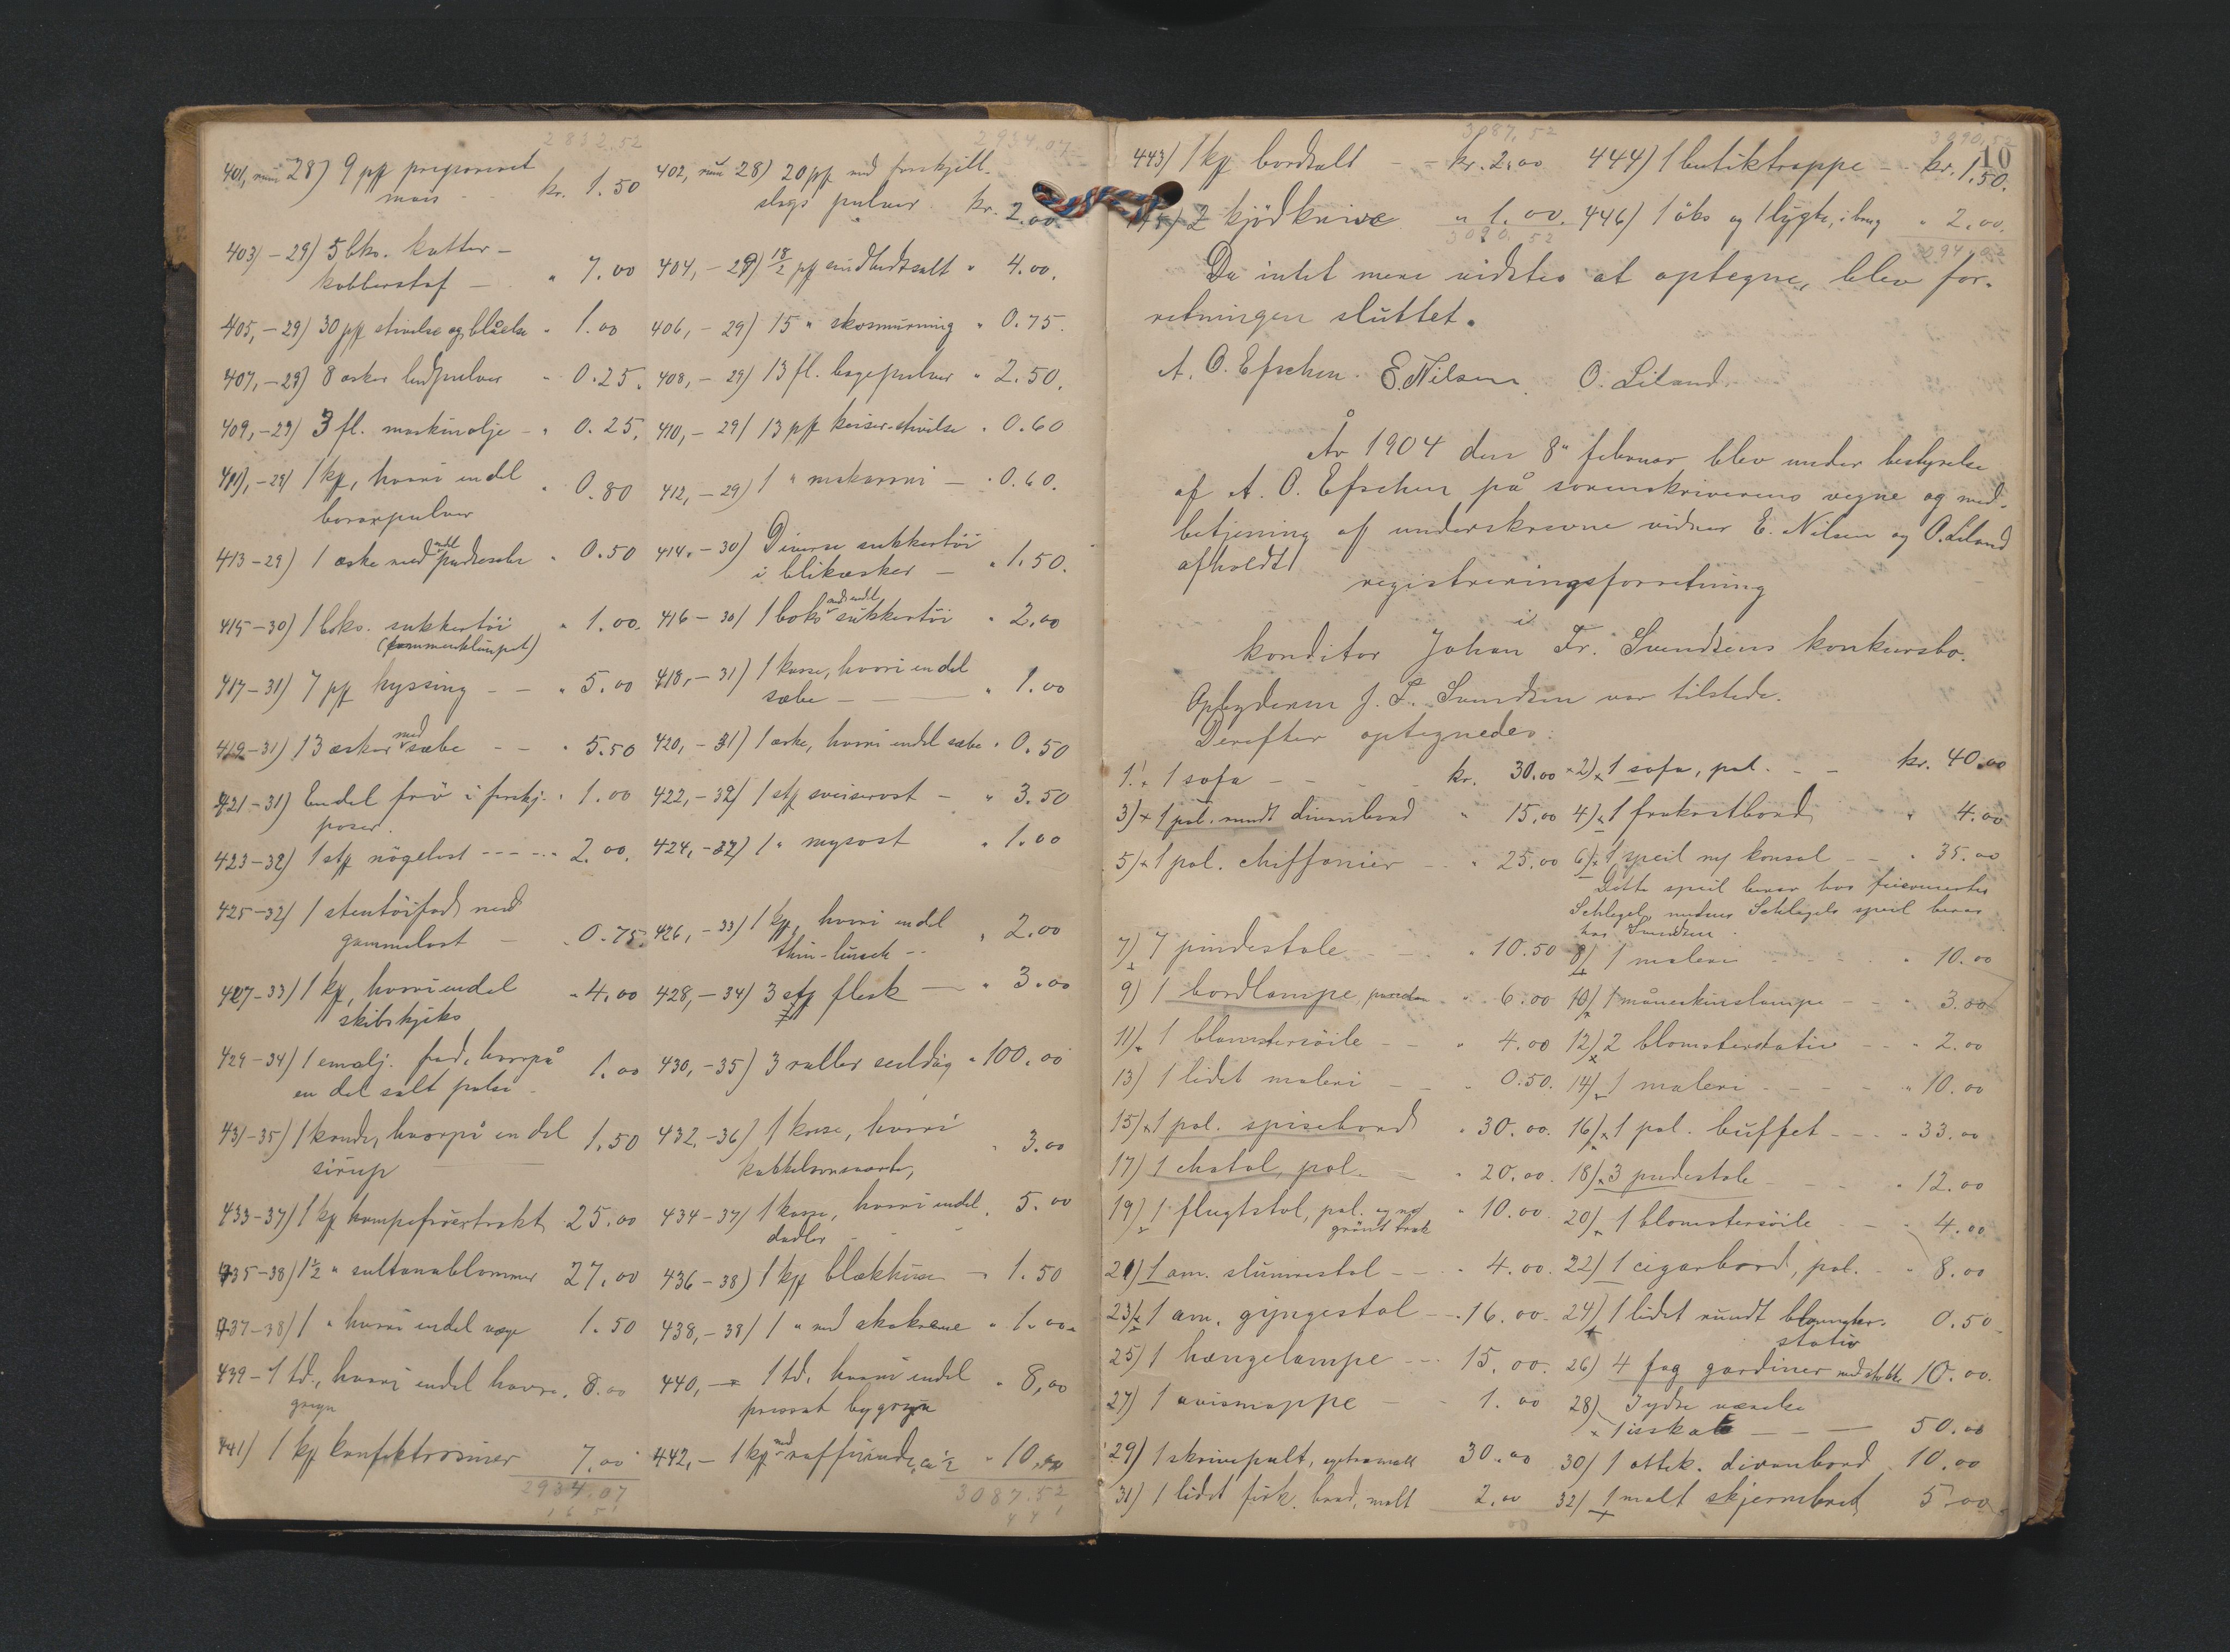 2832.52
2934.07
401, rum 28) 9 pk prepareret
mais - kr. 1.50
402, rum 28) 20 pk med forskjell.
slags pulver kr. 2.00
403) - 29) 5 bks. katter-
kobberstof - " 7.00
404, - 29) 18/2 pk sundhedssalt " 4.00.
405, - 29) 30 pk stivelse og blåelse " 1.00
406, - 29) 15 " skosmurning " 0.75.
407, - 29) 8 æsker ludpulver " 0.25.
408, - 29) 13 fl. bagepulver " 2.50.
409, - 29) 3 fl. maskinolje - " 0.25.
410, - 29) 13 pk keiser-stivelse " 0.60
411), - 29) 1 kp, hvori endel
boraxpulver " 0.80
412, - 29) 1 " makaroni - " 0.60.
413 - 29) 1 æske med endel pudresæbe " 0.50
414. - 30) Diverse sukkertöi
i blikæsker - " 1.50.
415 - 30) 1 boks. sukkertöi
(sammenklumpet) " 1.00.
416 - 30) 1 boks med endel sukkertöi " 2,00
417 - 31) 7 pk hyssing - - " 5.00
418, - 31) 1 kasse, hvori endel
sæbe - " 1.00
419 - 31) 13 æsker med sæbe - - " 5.50
420, - 31) 1 æske, hvori endel sæbe " 0.50
421 - 31) Endel frö i forskj.
poser. " 1.00
422, - 32) 1 stk sveiserost - " 3.50
423 - 32) 1 stk nögelost - - - - " 2.00.
424, - 32) 1 " mysost " 1.00
425 - 32) 1 stentöifad med
gammelost - " 0.75.
426, - 33) 1 kp, hvori endel
" 2.00
427 - 33) 1 kp, hvori endel
skibskjeks " 4.00
428, - 34) 3 stk flesk - " 3.00
429 - 34) 1 emalj. fad, hvorpå
en del salt pølse - 1.00
430, - 35) 3 ruller seildug " 100.00
431 - 35) 1 kande, hvorpå en del
sirup 1.50
432, - 36) 1 kasse, hvori
3.00
433 - 37) 1 kp 25.00
434 - 37) 1 kasse, hvori endel
dadler " 5.00
435 - 38) 1½ " sultanablommer 27.00
436 - 38) 1 kp blækhuse - 1.50
437 - 38) 1 " hvori endel væge 1.50
438, - 38) 1 " med skokreme " 1.00
439 - 1 td., hvori endel havre
gryn " 8.00
440, - 1 td. hvori endel
presset bygryn " 8,00
441) 1 kp konfektrosiner 7.00
442, - 1 kp med raffinade, ca ½ " 10.00
2934.07
3087.52
3087.52
3090.52
10
443) 1 kp bordsalt - - kr. 2.00
444) 1 butiktrappe - - kr. 1.50.
445) 2 kjödknive " 1.00.
446) 1 öks og 1 lygte, i brug " 2.00.
3090.52
3094.02
Da intet mere vidstes at optegne, blev for-
retningen sluttet.
A. O. Efschen. E. Nilsen. O. Liland.
År 1904 den 8" februar blev under bestyrelse
af A. O. Efschen på sorenskriverens vegne og med-
betjening af underskrevne vidner E. Nilsen og O. Liland
afholdt
registreringsforretning
i
konditor Johan Fr. Svendsens konkursbo.
Opbyderen J. F. Svendsen var tilstede.
Derefter optegnedes:
1. 1 sofa - - - kr. 30.00
2) 1 sofa, pol. - - kr. 40.00
3) 1 pol. rundt divanbord " 15.00
4) 1 frokostbord " 4.00
5) 1 pol. chiffonier - " 25.00
6) 1 speil m/ konsol - - " 35.00
Dette speil beror hos
Schlegel, medens Schlegels speil beror
hos Svendsen.
7) 7 pindestole - - " 10.50
8) 1 maleri - - - " 10.00
9) 1 bordlampe, " 6.00
10) 1 måneskinslampe - - " 3.00
11) 1 blomstersöile - - " 4.00
12) 2 blomsterstativ - - " 2.00
13) 1 lidet maleri - - " 0.50.
14) 1 maleri - - - - " 10.00
15) 1 pol. spisebord " 30.00.
16) 1 pol. buffet - - - " 33.00
17) 1 chatol, pol. - " 20.00.
18) 3 pudestole - - - " 12.00
19) 1 flugtstol, pol. og med
grönt træk " 10.00.
20) 1 blomstersöile - - " 4.00
21) 1 am. slumrestol - - " 4.00.
22) 1 cigarbord, pol. - " 8.00
23) 1 am. gyngestol - - " 16.00.
24) 1 lidet rundt blomster-
stativ 0.50
25) 1 hængelampe - - - 15.00.
26) 4 fag gardiner med stokke 10.00.
27) 1 avismappe - - 1.00
28) 3 ydre
1 isskab - - - 50.00
29) 1 skrivepult, 30.00
30) 1 ottek. divanbord 10.00
31) 1 lidet firk. bord, malt 2.00
32) 1 malt skjermbret 5.00